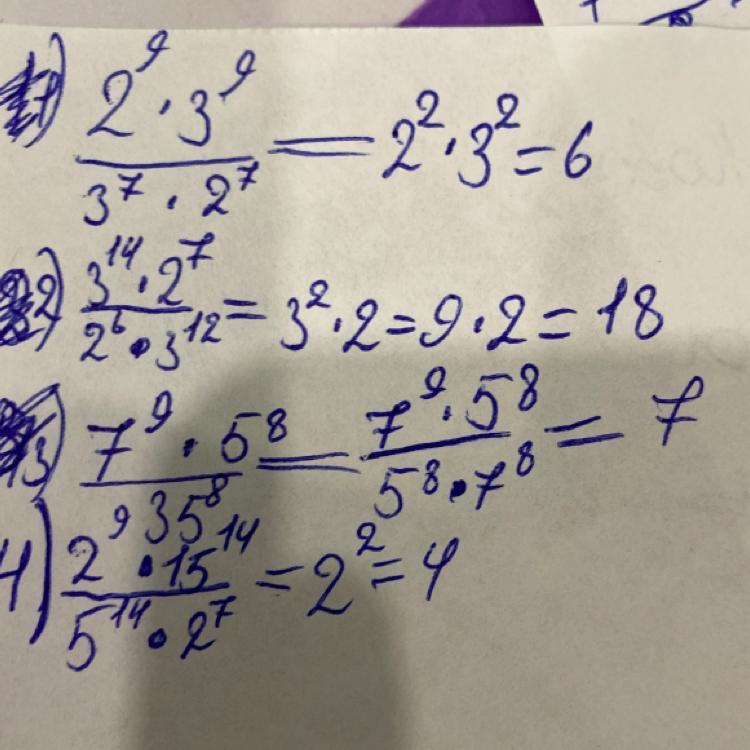 1) 2⁹·3⁹ / 3⁷·2⁷ = 2²·3² = 6
2) 3¹⁴·2⁷ / 2⁶·3¹² = 3²·2 = 9·2 = 18
3) 7⁹·5⁸ / 35⁸ = 7⁹·5⁸ / 5⁸·7⁸ = 7
4) 2⁹·15¹⁴ / 5¹⁴·2⁷ = 2² = 4